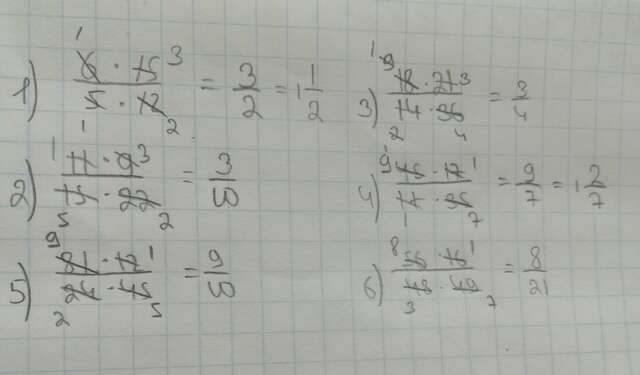 1) 6 · 15 / 5 · 12 = 3/2 = 1 1/2
2) 11 · 9 / 15 · 22 = 3/
5) 81 · 12 / 24 · 45 = 9/
3) 18 · 21 / 14 · 36 = 3/4
4) 45 · 17 / · = 9/7 = 1 2/7
6) 56 · 16 / 48 · 49 = 8/21